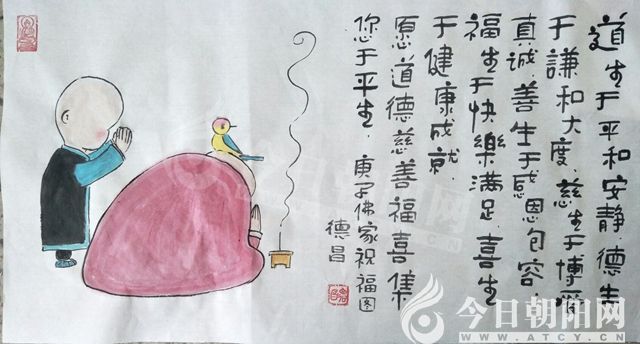 道生于平和安静.德生
于謙和大度.慈生于博愛
真诚.善生于感恩包容
福生于快樂滿足.喜生
于健康成就.
愿道德慈善福喜集
您于平生.庚子佛家祝福图
德昌
今日朝阳网
WWW.ATCY.CN